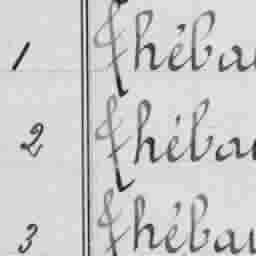 1 Théba
2 Théba
3 Thébau